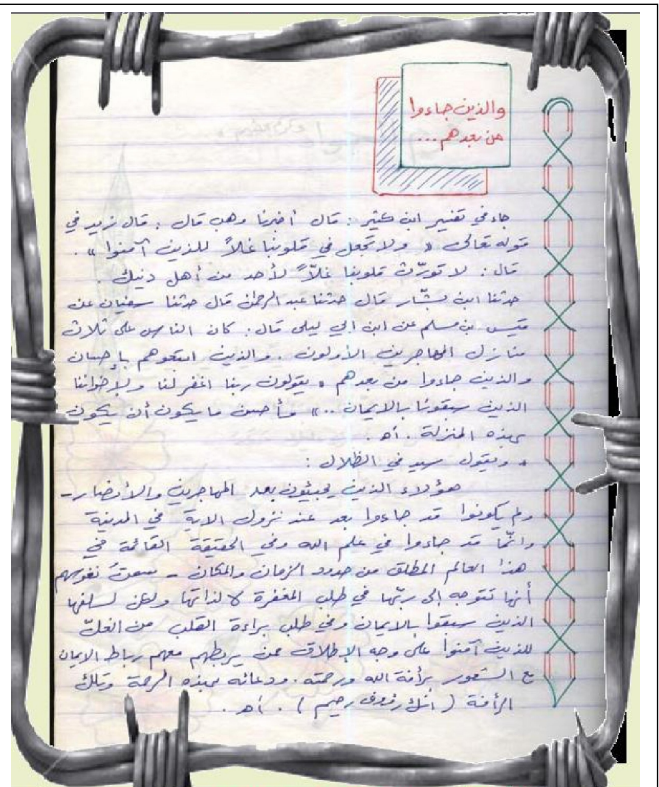 والذين جاءوا
من بعدهم ...
جاء في تفسير ابن كثير : قال أخبرنا وهب قال : قال زيد في
قوله تعالى « ولا تجعل في قلوبنا غلاً للذين آمنوا » .
قال : لا تورّث قلوبنا غلاً لأحد من أهل دينك .
حدثنا ابن بشّار قال حدثنا عبد الرحمٰن قال حدثنا سفيان عن
قيس ابن مسلم عن ابن أبي ليلى قال : كان الناس على ثلاث
منازل المهاجرين الأولون . والذين اتبعوهم بإحسان
والذين جاءوا من بعدهم « يقولون ربنا اغفر لنا ولإخواننا
الذين سبقونا بالايمان .. » فأحسن ما يكون أن يكون
بهذه المنزلة . أهـ .
* ويقول سيد في الظلال :
هؤلاء الذين يجيئون بعد المهاجرين والأنصار -
ولم يكونوا قد جاءوا بعد عند نزول الاية في المدينة
وانما قد جاءوا في علم الله وفي الحقيقة القائمة في
هذا العالم المطلق من حدود الزمان والمكان - سمة نفوسهم
أنها تتوجه إلى ربّها في طلب المغفرة لا لذاتها ولكن لسلفها
الذين سبقوا بالايمان وفي طلب براءة القلب من الغلّ
للذين آمنوا على وجه الإطلاق ممن يربطهم معهم رباط الايمان
مع الشعور برأفة الله ورحمته . ودعائه بهذه الرحمة وتلك
الرأفة ( انك رءوف رحيم ) . أهـ .